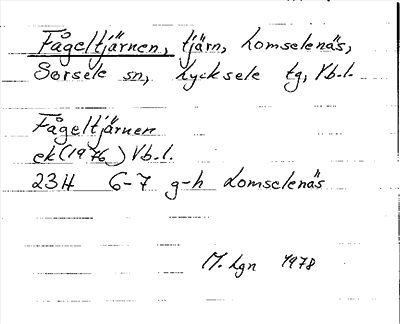 Fågeltjärnen, tjärn, Lomselenäs,
Sorsele sn, Lycksele tg, Vb.l.
Fågeltjärnen
ek (1976) Vb.l.
23H 6-7 g-h Lomselenäs
M. Lgn 1978